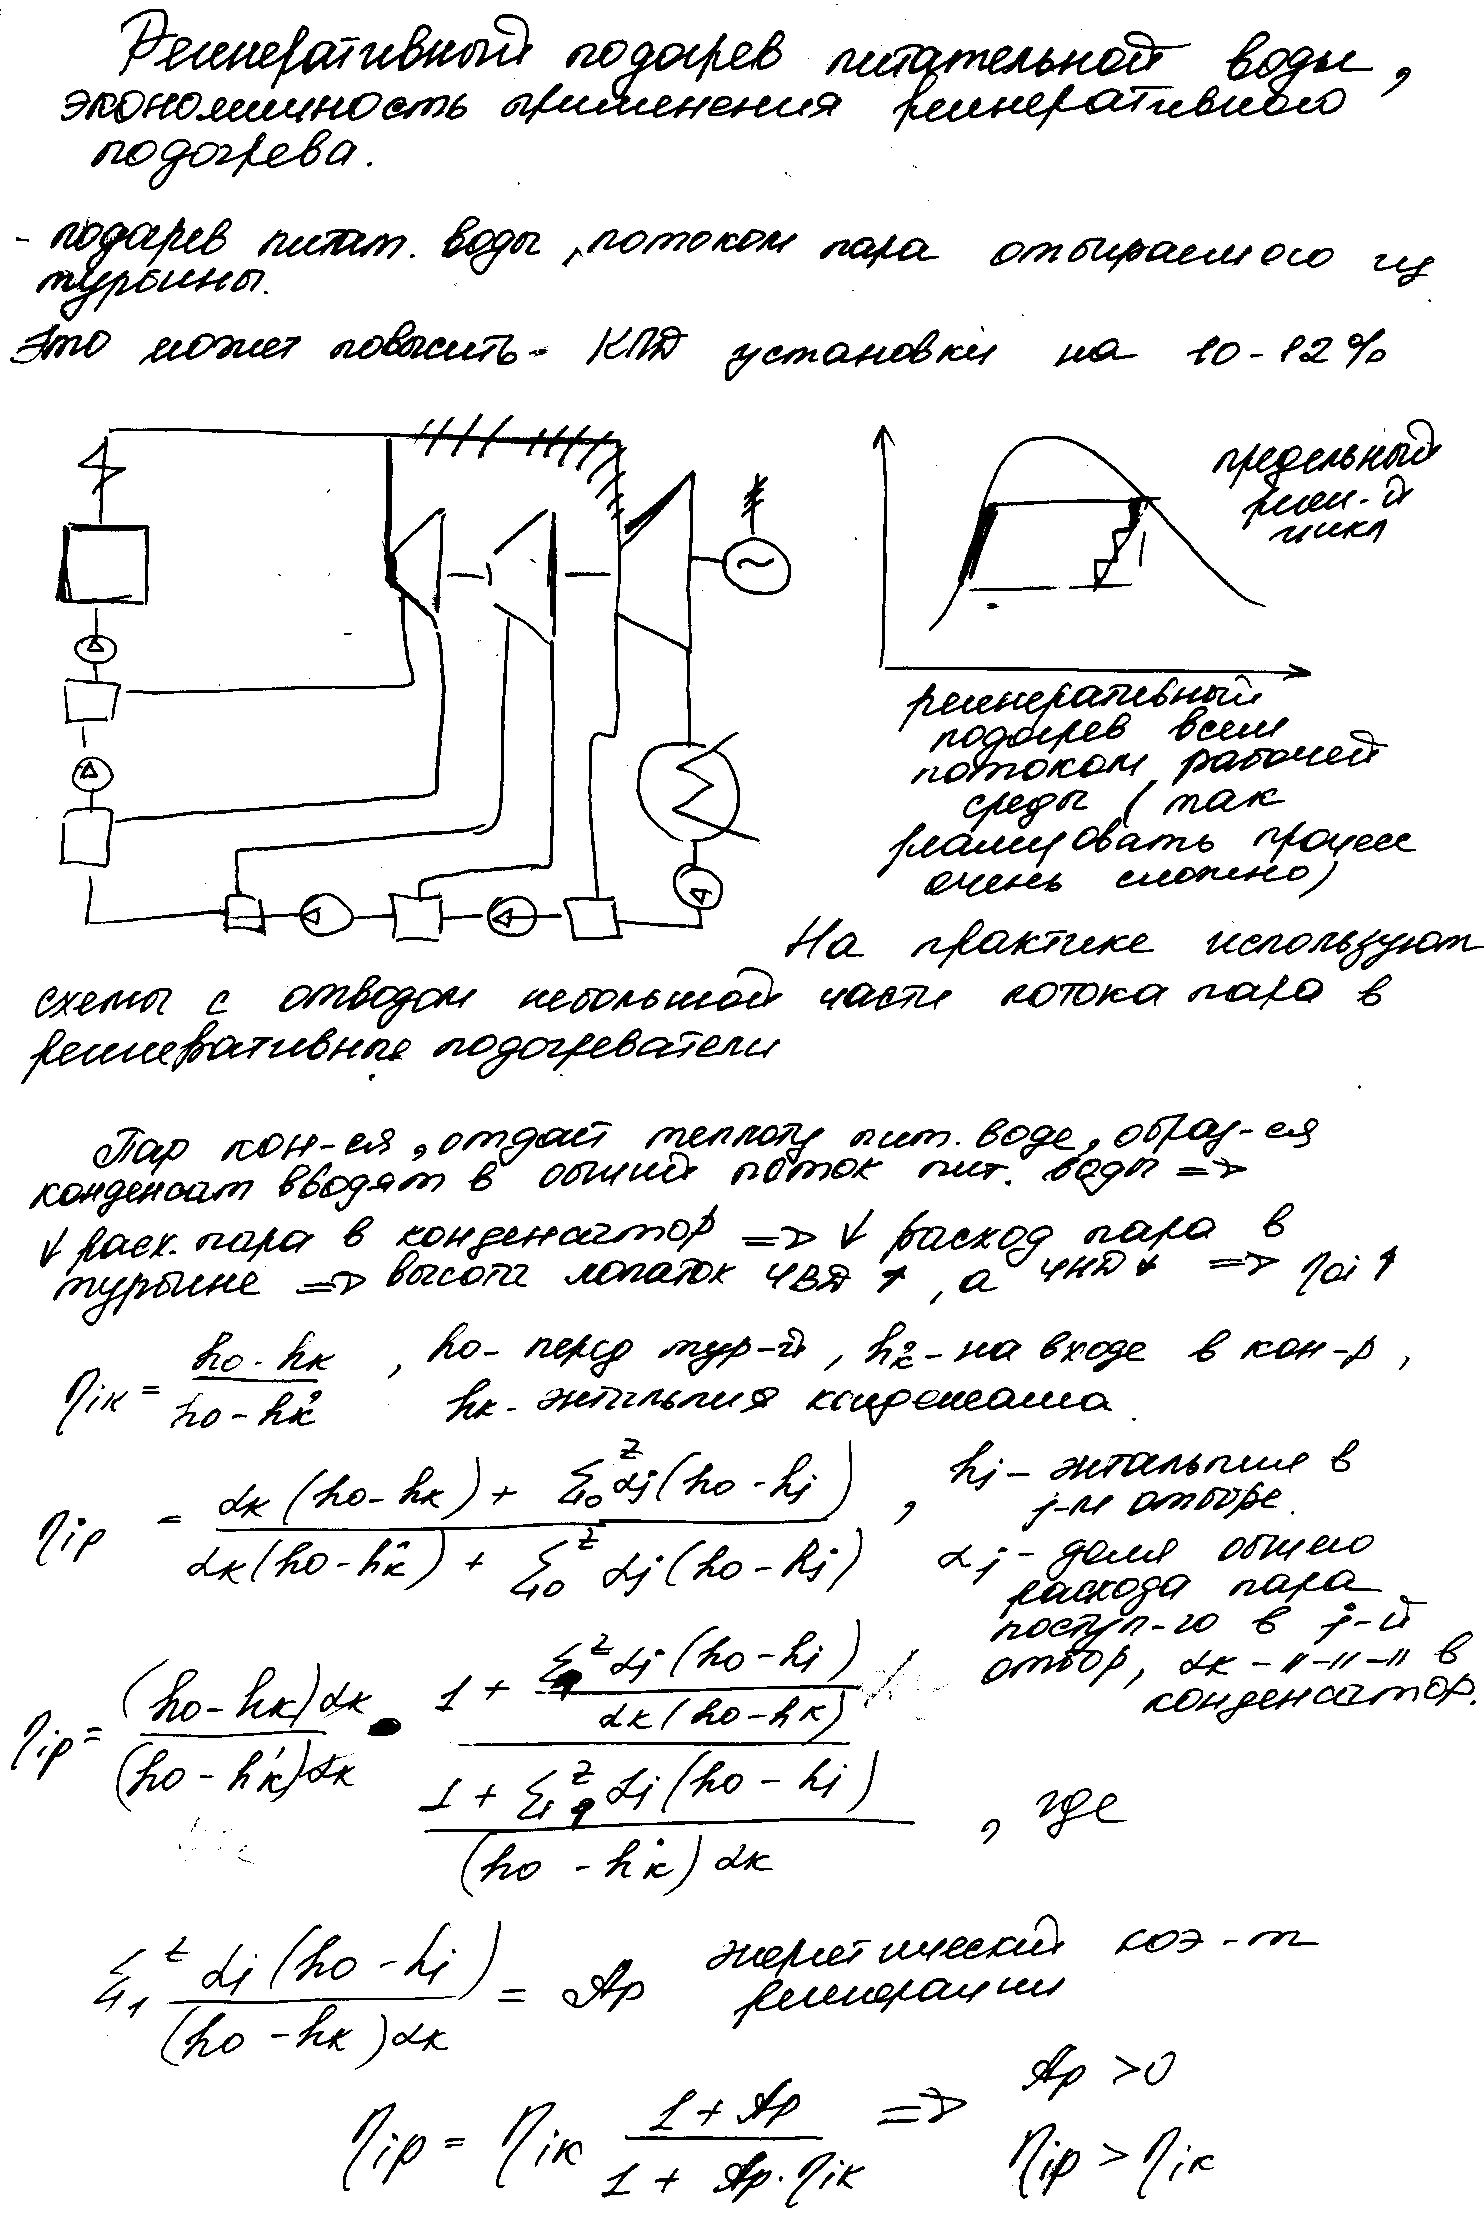 Регенеративный подогрев питательной воды,
экономичность применения регенеративного
подогрева.
- подогрев питат. воды, потоком пара отбираемого из
турбины.
Это может повысить КПД установки на 10-12%
предельный
реген-й
цикл
регенеративный
подогрев всем
потоком рабочей
среды (так
реализовать процесс
очень сложно)
На практике используют
схемы с отводом небольшой части потока пара в
регенеративные подогреватели
Пар кон-ся, отдаёт теплоту пит. воде, образ-ся
конденсат вводят в общий поток пит. воды =>
↓ расх. пара в конденсатор => ↓ расход пара в
турбине => высота лопаток ЧВД ↑, а ЧНД ↓ => ηoi ↑
ηiк = (h0 - hк) / (h0 - h'к) , h0 - перед тур-й, hк - на входе в кон-р,
hк - энтальпия конденсата
ηip = (αк (h0 - hк) + Σ0^z αj (h0 - hj)) / (αк (h0 - h'к) + Σ0^z αj (h0 - hj)) , hj - энтальпия в
j-м отборе.
αj - доля общего
расхода пара
поступ-го в j-й
отбор, αк - "-"-" в
конденсатор.
ηip = ((h0 - hк) αк) / ((h0 - h'к) αк) • (1 + Σ1^z αj (h0 - hj) / (αк (h0 - hк))) / (1 + Σ1^z αj (h0 - hj) / ((h0 - h'к) αк)) , где
Σ1^z αj (h0 - hj) / ((h0 - hк) αк) = Ap энергетический коэ-т
регенерации
ηip = ηiк (1 + Ap) / (1 + Ap · ηiк) => Ap > 0
ηip > ηiк